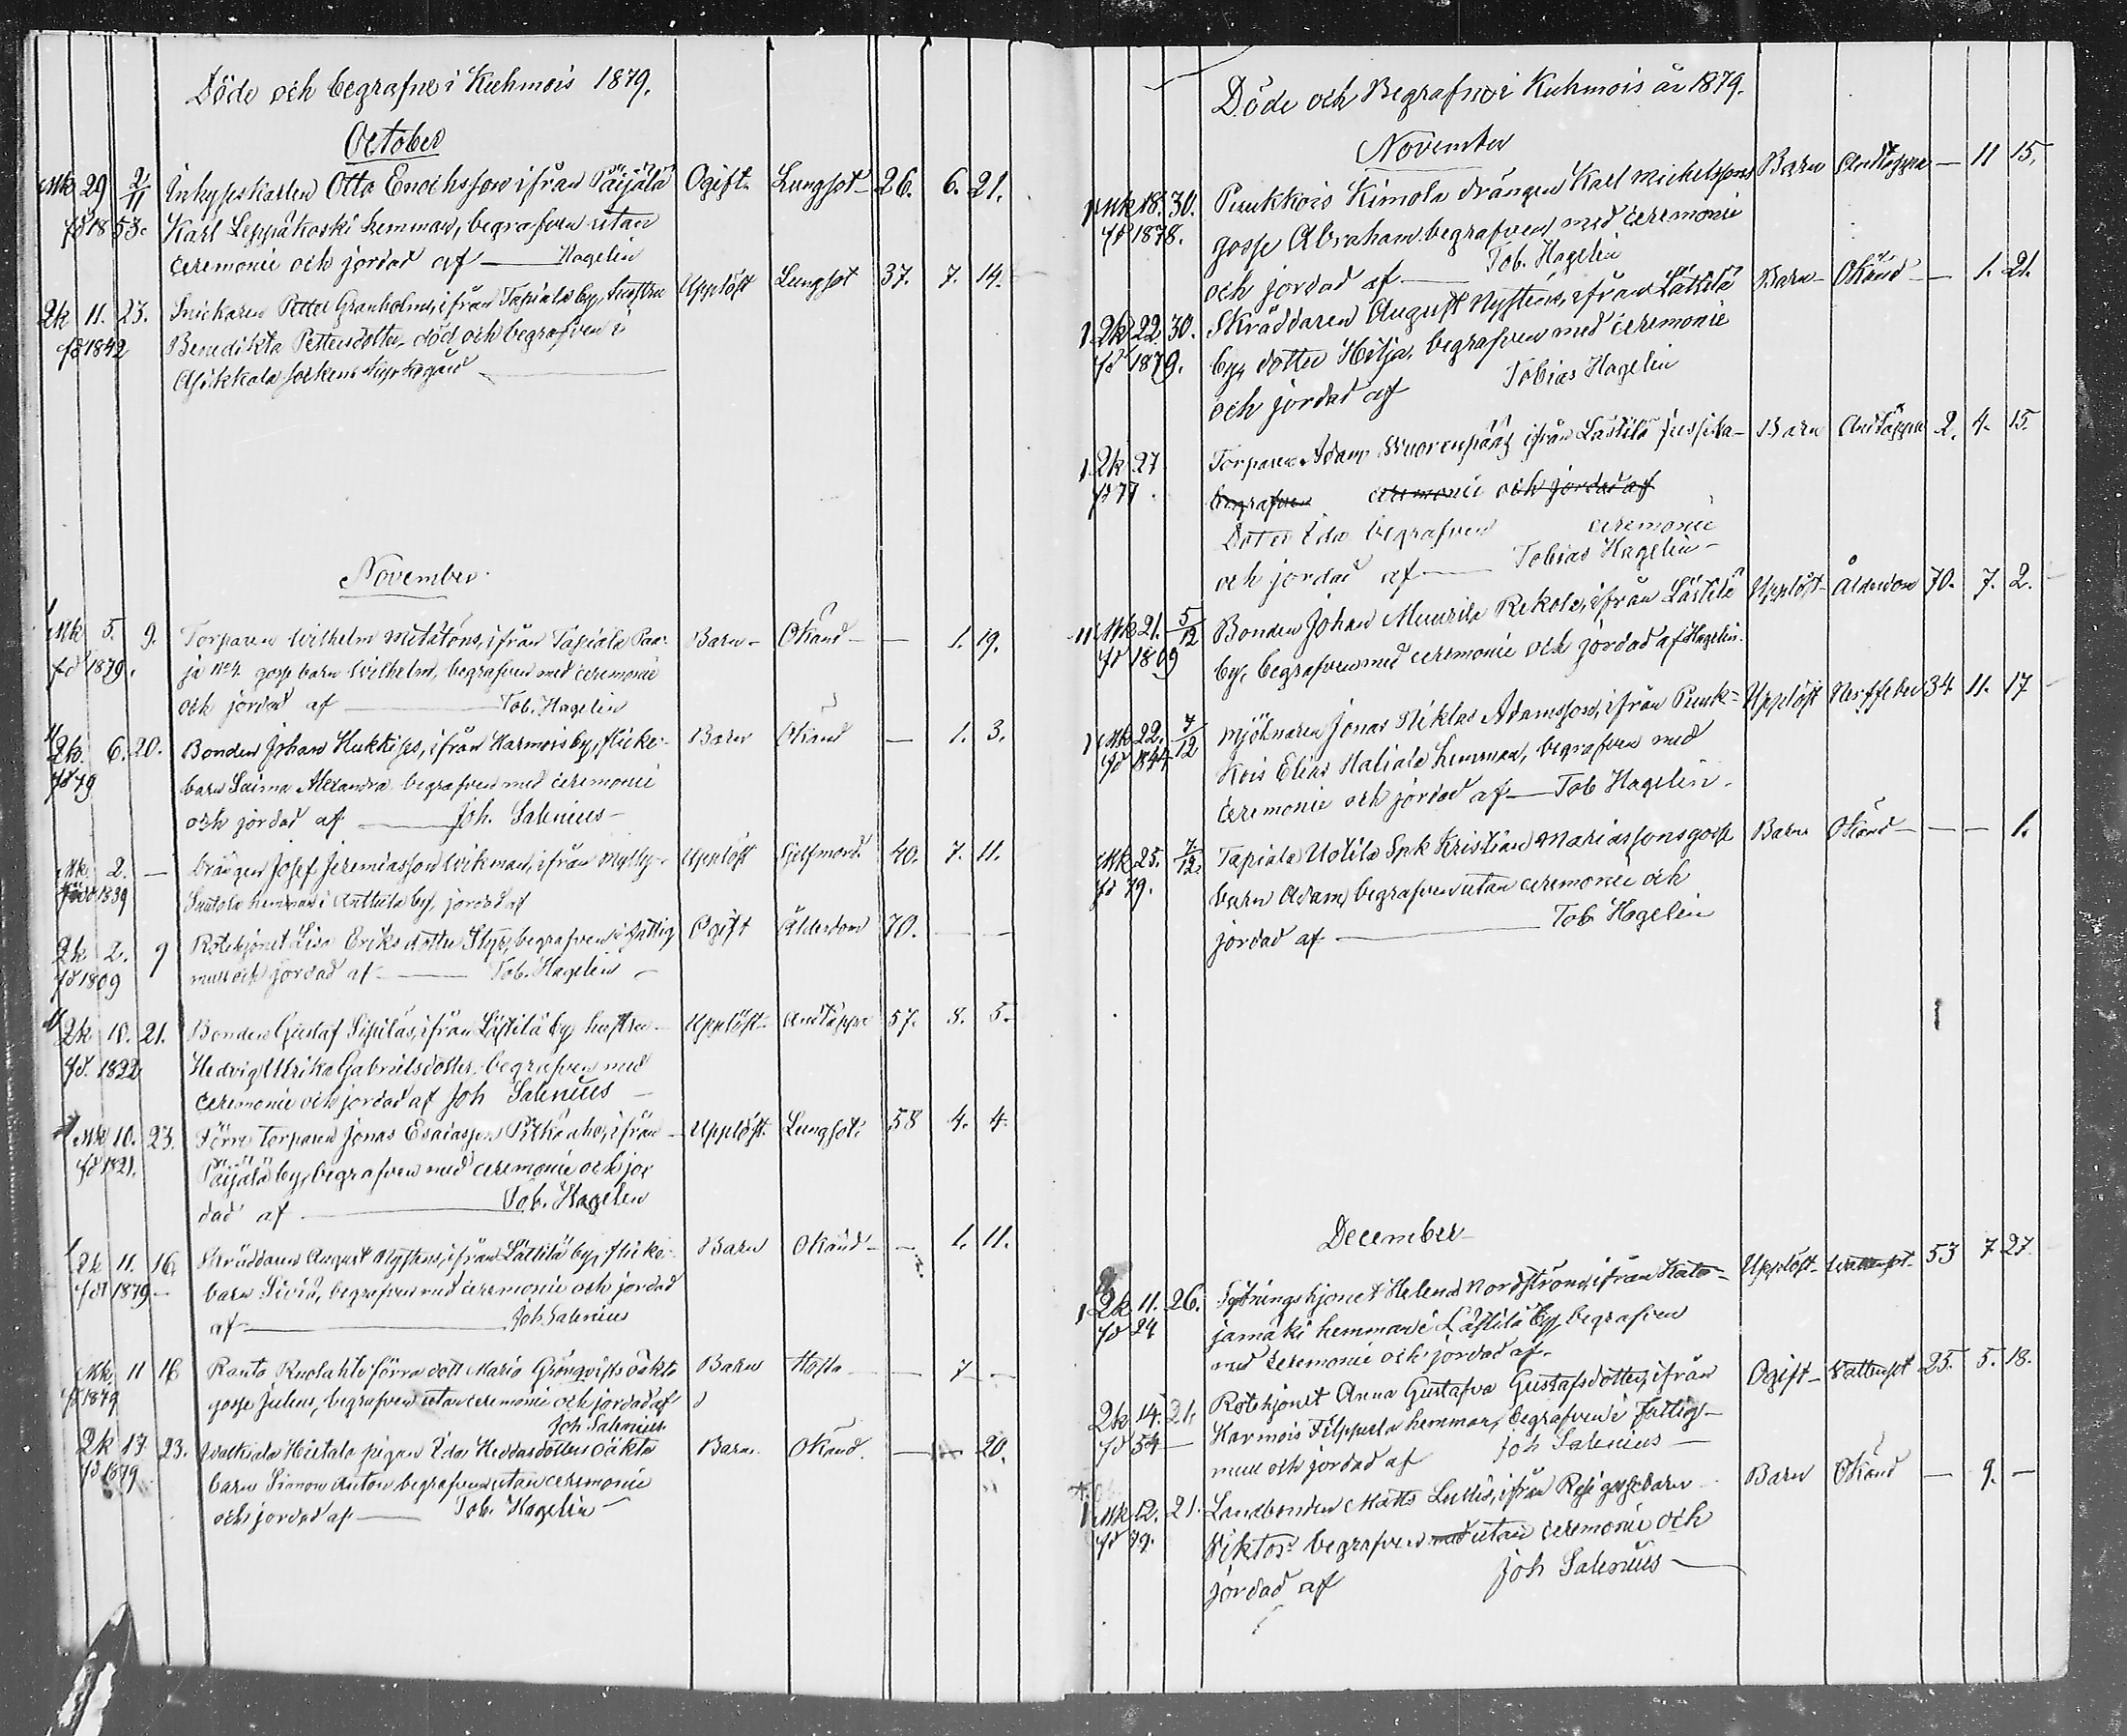 Döde och begrafne i Kuhmois 1879.
October
Mk 29 2/11 Inhyseskarlen Otto Enochsson ifrån Päijälä Ogift Lungsot 26. 6. 21.
fd 1853. Karl Leppäkoski hemman, begrafven utan
ceremonie och jordad af — Hagelin
Qk 11. 23. Snickaren Petter Granholms, ifrån Tapiala by, hustru Upplöst Lungsot 37. 7. 14.
fd 1842 Benedikta Pettersdotter död och begrafven i
Asikkala sockens kyrkogård
November
Mk 5. 9. Torparen Wilhelm ifrån Tapiala Barn Okänd — 1. 19.
fd 1879. ja No 4. gossebarn Wilhelm, begrafven med ceremonie
och jordad af — Tob. Hagelin
Qk. 6. 20. Bonden Johan ifrån Harmois by, flicke- Barn Okänd — 1. 3.
fd 79 barn Saima Alexandra begrafven med ceremonie
och jordad af — Joh. Salenius
Mk 2. — Drängen Josef Jeremiasson Wikman, ifrån Mylly- Upplöst Sjelfmord 40. 7. 11.
född 1839 hemman i Anttila by, jordad af
Qk 2. 9 Rotehjonet Lisa Eriksdotter Styf, begrafven i fattig Ogift Ålderdom 70. — —
fd 1809 mull och jordad af — Tob. Hagelin
Qk 10. 21. Bonden Gustaf Sipiläs, ifrån Lästilä by hustru Upplöst Andtäppa 57. 8. 5.
fd. 1822 Hedvig Ulrika Gabrielsdotter, begrafven med
ceremonie och jordad af Joh Salenius
Mk 10. 23. Förre torparen Jonas Esaiasson Pitkänaho, ifrån Upplöst Lungsot 58 4. 4.
fd 1821. Päijälä by, begrafven med ceremonie och jor
dad af — Tob. Hagelin
Qk 11. 16. Skräddaren August Nystens, ifrån Lättilä by, flicke- Barn Okänd — 1. 11.
fd 1879 — barn Siviä, begrafven med ceremonie och jordad
af — Joh Salenius
Mk 11 16 Ranta Ruolahti förra dott Maria Grönqvists oäkta Barn Hosta — 7 —
fd 1879 gosse Julius, begrafven utan ceremonie och jordad af
Joh Salenius
Qk 17 23. Hietala pigan Ida Heddasdotters oäkta Barn Okänd — — 20.
fd 1879 barn Simon Anton begrafven utan ceremonie
och jordad af — Tob. Hagelin
Döde och Begrafne i Kuhmois år 1879.
November
Mk 18. 30. Puukkois Kimola drängen Karl Michelssons Barn Andtäppa — 11 15.
fd 1878. gosse Abraham begrafven med ceremonie
och jordad af — Tob. Hagelin
Qk 22 30. Skräddaren August Nystens, ifrån Lättilä Barn Okänd — 1. 21.
fd 1879. by, dotter Hilja, begrafven med ceremonie
och jordad af Tobias Hagelin
Qk 27 Torparen Adam Wuorenpääs ifrån Lästilä Jussila Barn Andtäppa 2. 4. 15.
fd 77. begrafven ceremonie och jordad af
Dotter Ida begrafven ceremonie
och jordad af — Tobias Hagelin
Mk 21. 5/12 Bonden Johan Rekola, ifrån Lästilä Upplöst Ålderdom 70. 7. 2.
fd 1809 by, begrafven med ceremonie och jordad af Hagelin.
Mk 22. 7/12 Mjölnaren Jonas Niklas Adamsson, ifrån Puuk- Upplöst Nerffeber 34 11. 17
fd 1844 kois Elias Haliala hemman, begrafven med
ceremonie och jordad af — Tob Hagelin.
Mk 25. 7/12. Tapiala Uotila Spk Kristian Mariassons gosse Barn Okänd — — 1.
fd 79. barn Adam, begrafven utan ceremonie och
jordad af — Tob. Hagelin
December
Qk 11. 26. Sytningshjonet Helena Nordström, ifrån Kata- Upplöst Wattensot 53 7 27.
fd 24 jamäki hemman i Lästilä by, begrafven
med ceremonie och jordad af
Qk 14. 21. Rotehjonet Anna Gustafva Gustafsdotter, ifrån Ogift Vattensot 25. 5. 18.
fd 54 — Harmois Filppula hemman, begrafven i fattig-
mull och jordad af Joh Salenius
Mk 12. 21. Landbonden Matts ifrån gossebarn Barn Okänd — 9. —
fd 79. Viktor begrafven med utan ceremonie och
jordad af Joh Salenius